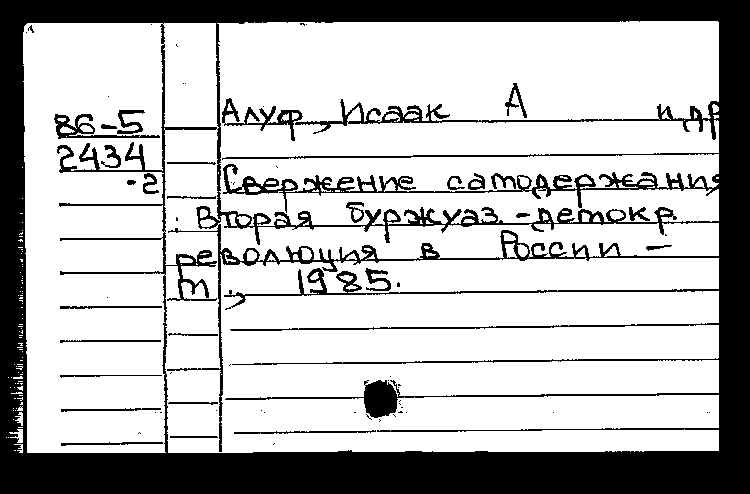 86-5 Алуф, Исаак А и др
2434
-2 Свержение самодержания
: Вторая буржуаз.-демокр.
революция в России –
М., 1985.